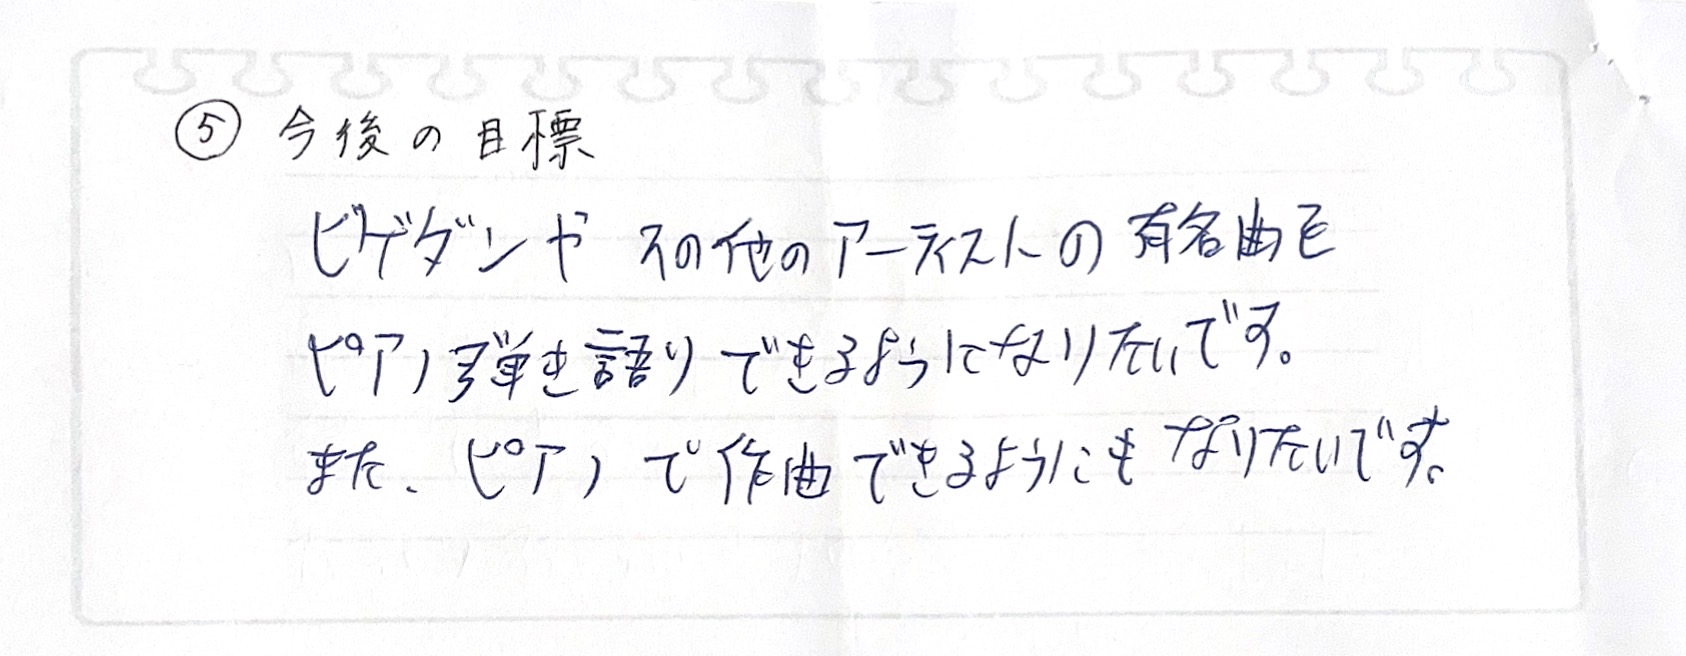 ⑤ 今後の目標
ヒゲダンや その他のアーティストの 有名曲を
ピアノ弾き語りできるようになりたいです。
また、ピアノで作曲できるようにもなりたいです。